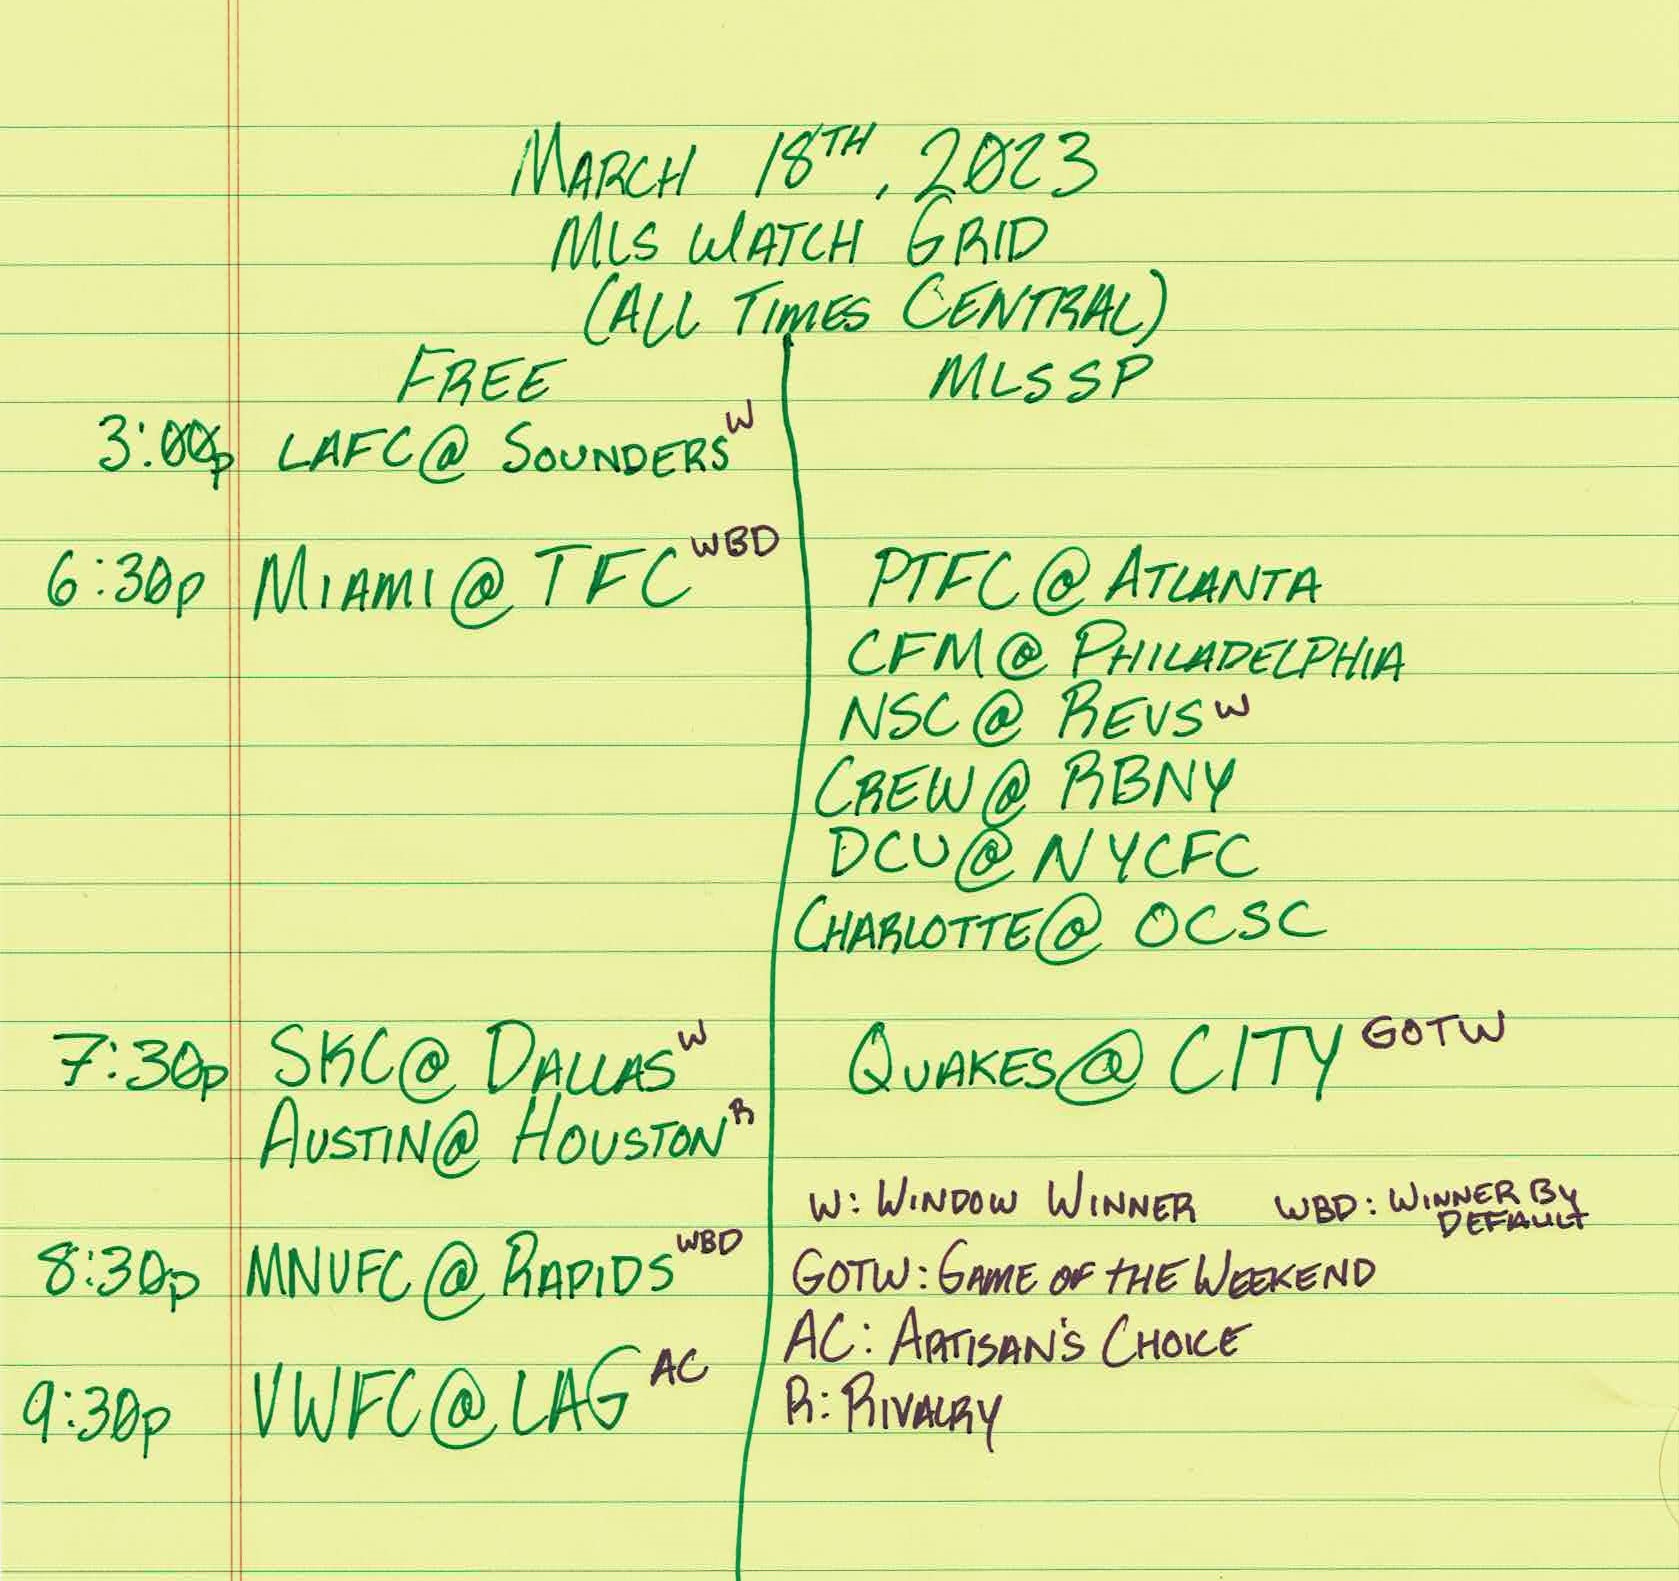 MARCH 18TH, 2023
MLS WATCH GRID
(ALL TIMES CENTRAL)
FREE MLSSP
3:00p LAFC @ SOUNDERS W
6:30p MIAMI @ TFC WBD PTFC @ ATLANTA
CFM @ PHILADELPHIA
NSC @ REVS W
CREW @ RBNY
DCU @ NYCFC
CHARLOTTE @ OCSC
7:30p SKC @ DALLAS W QUAKES @ CITY GOTW
AUSTIN @ HOUSTON R
W: WINDOW WINNER WBD: WINNER BY DEFAULT
8:30p MNUFC @ RAPIDS WBD GOTW: GAME OF THE WEEKEND
AC: ARTISAN'S CHOICE
9:30p VWFC @ LAG AC R: RIVALRY